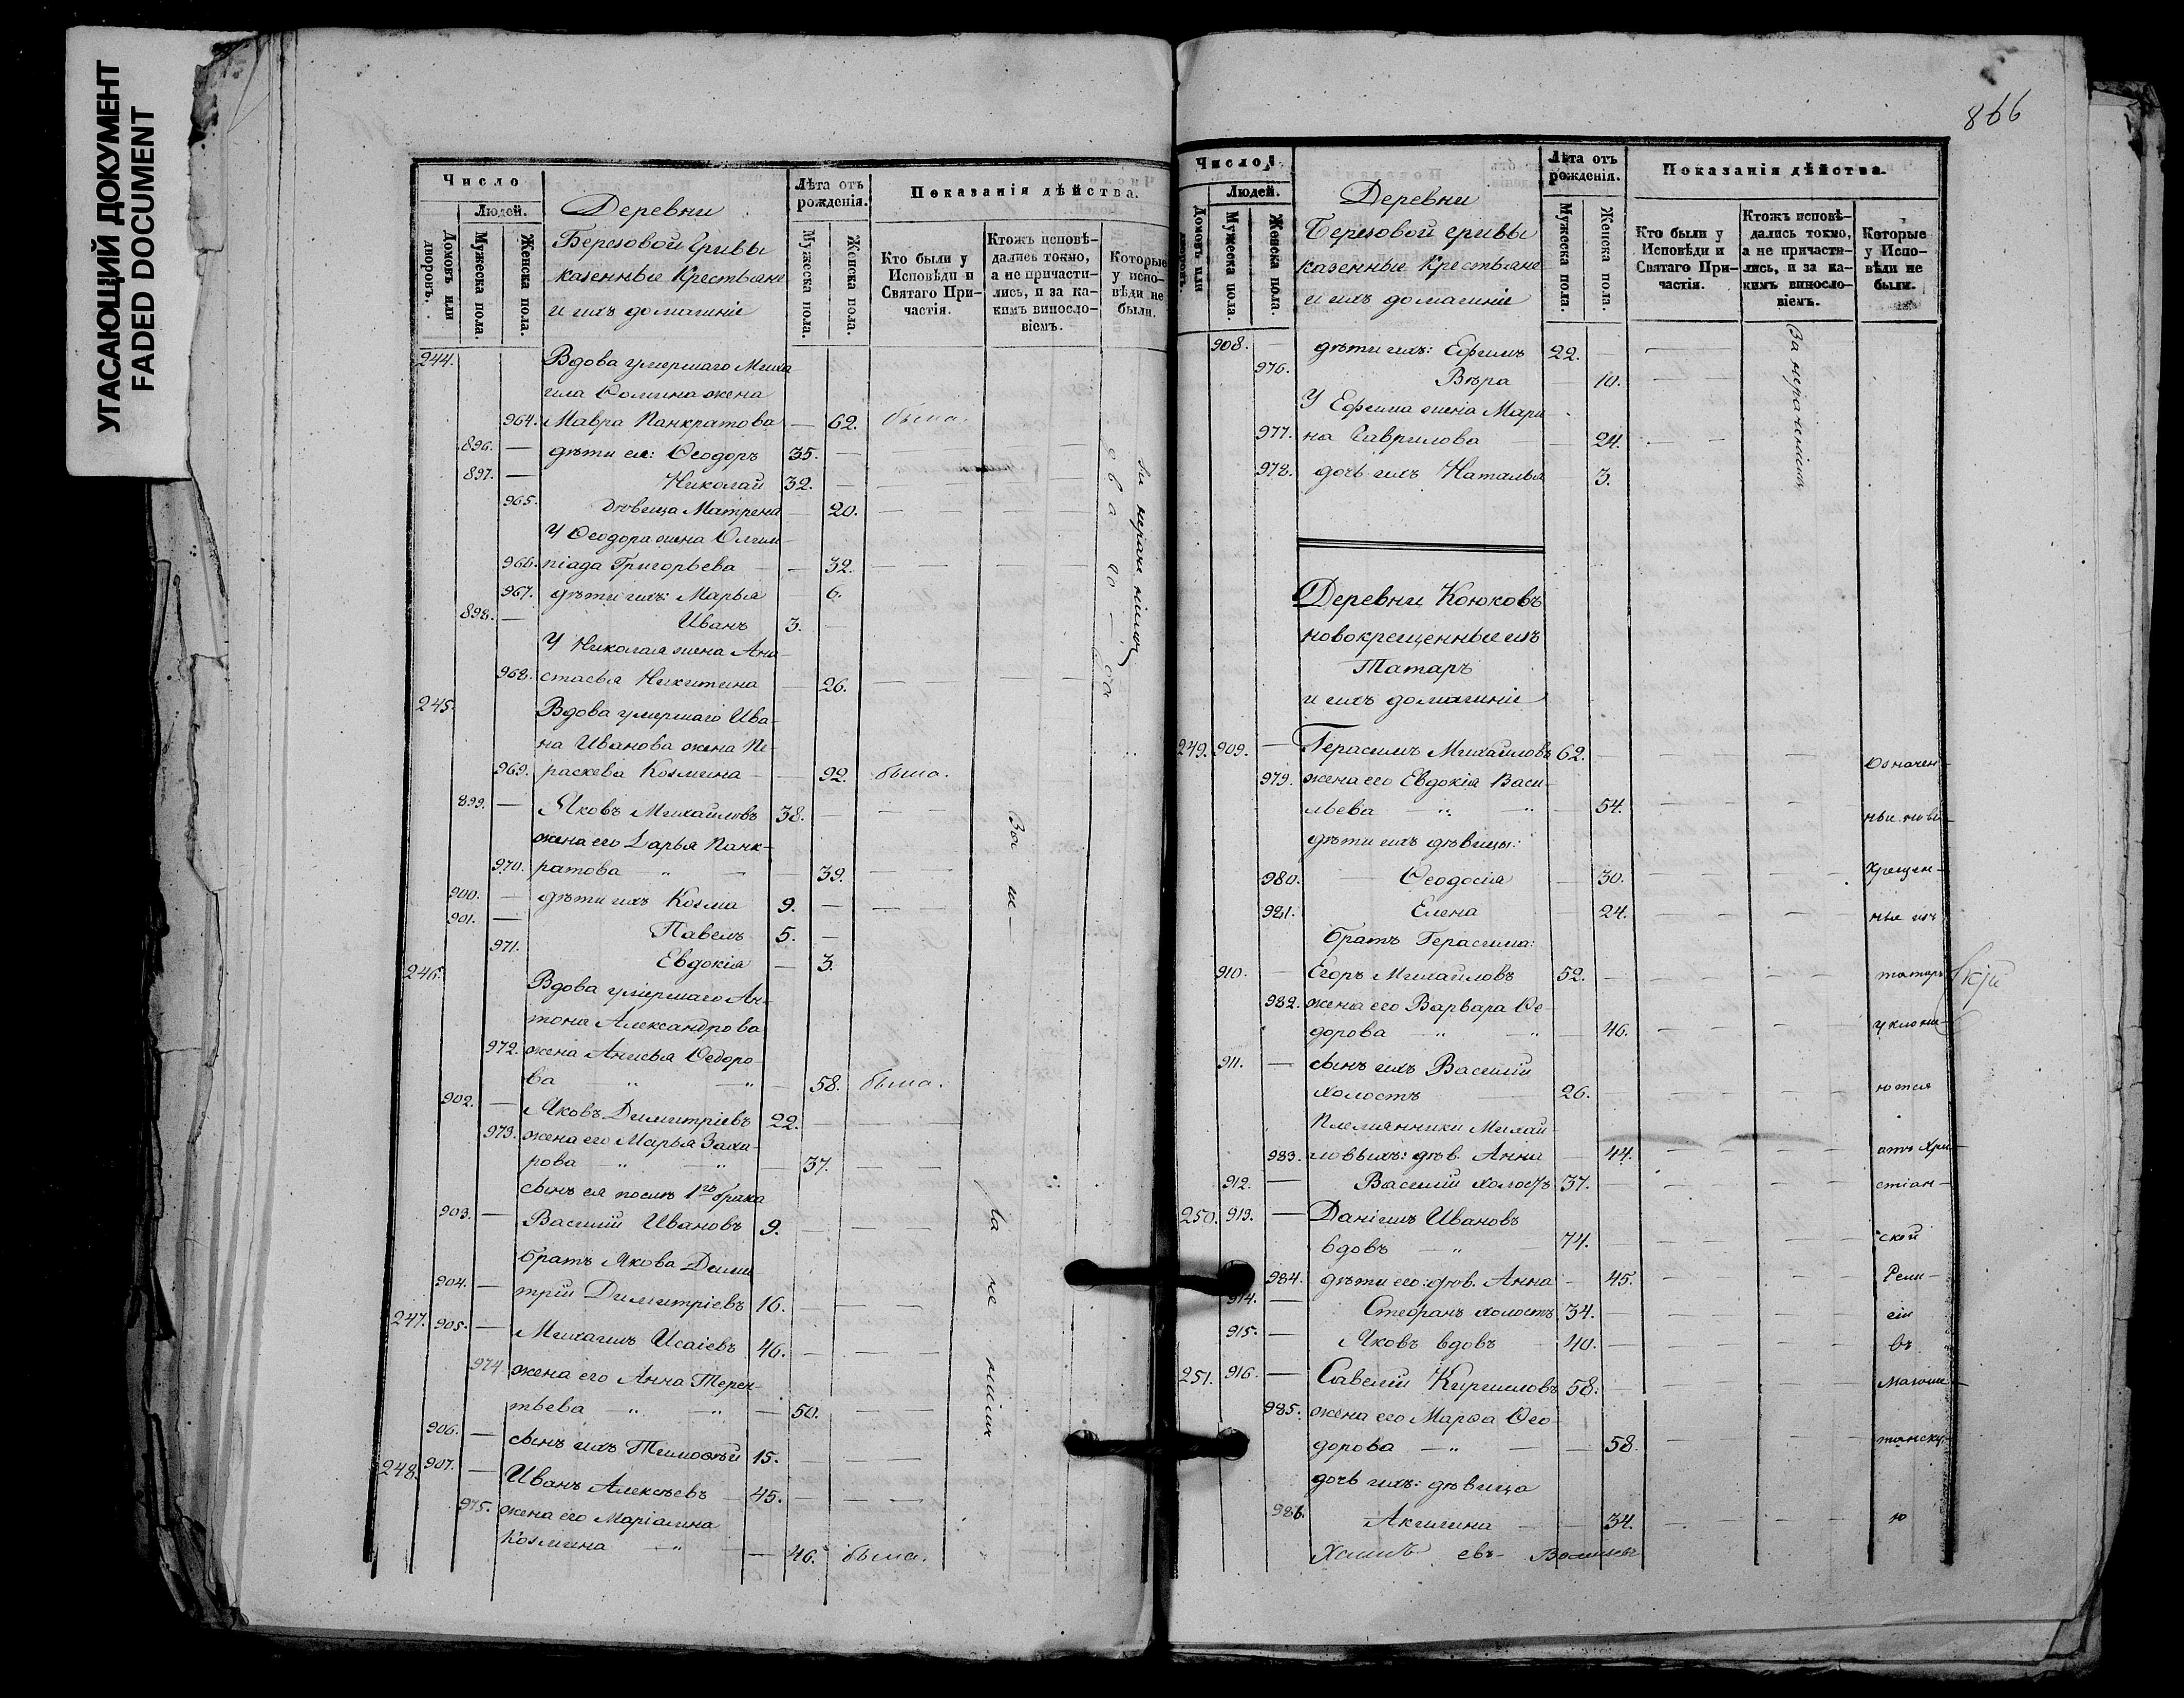 УГАСАЮЩИЙ ДОКУМЕНТ
FADED DOCUMENT
866
Число
Людей.
Домовъ или дворовъ.
Мужеска пола.
Женска пола.
Деревни
Березовой Гривы
казенные Крестьяне
и ихъ домашніе
Лѣта отъ рожденія.
Мужеска пола.
Женска пола.
Показанія дѣйства.
Кто были у Исповѣди и Святаго Причастія.
Ктожъ исповѣдались токмо, а не причастились, и за какимъ винословіемъ.
Которые у исповѣди не были.
244. Вдова умершаго Миха
ила Фомина жена
964. Мавра Панкратова — 62. была.
896. — дѣти ея: Ѳеодоръ 35. —
897. — Николай 32. —
965. дѣвица Матрена — 20. — —
У Ѳеодора жена Олим-
966. піада Григорьева — 32. — —
967. дѣти ихъ: Марья — 6.
898. — Иванъ 3. —
У Николая жена Ана-
968. стасья Никитина — 26. —
245. Вдова умершаго Ива-
на Иванова жена Па-
969. раскева Козмина — 92. была.
899. — Яковъ Михайловъ 38. — —
жена его Дарья Панк-
970. ратова — „ — 39. —
900. — дѣти ихъ Козма 9. — —
901. — Павелъ 5. —
971. Евдокія — 3.
246. Вдова умершаго Ан-
тона Александрова
972. жена Анисья Ѳедоро-
ва — „ — „ — 58. была.
902. — Яковъ Димитріевъ 22. — —
973. жена его Марья Заха-
рова — „ — „ — 37. — —
сынъ ея посля 1го брака
903. — Василій Ивановъ 9. — —
братъ Якова Дими
904. — трій Димитріевъ 16. — — —
247. 905. — Михаилъ Исаіевъ 46. — — —
974. жена его Анна Терен-
тьева — „ — „ — 50. — —
906. — сынъ ихъ Тимоѳей 15. — — —
248. 907. — Иванъ Алексѣевъ 45. — — —
975. жена его Маріамна
Козмина — „ — 46. была.
За нераченіемъ
Число
Людей.
Домовъ или дворовъ.
Мужеска пола.
Женска пола.
Деревни
Березовой гривы
казенные Крестьяне
и ихъ домашніе
Лѣта отъ рожденія.
Мужеска пола.
Женска пола.
Показанія дѣйства.
Кто были у Исповѣди и Святаго Причастія.
Ктожъ исповѣдались токмо, а не причастились, и за какимъ винословіемъ.
Которые у Исповѣди не были.
908. — дѣти ихъ: Ефимъ 22. — —
976. Вѣра — 10. — —
У Ефима жена Мари
977. на Гаврилова — 24. — —
978. дочь ихъ Наталья — 3.
За нераченіемъ
Деревни Коюковъ
новокрещенные изъ
Татаръ
и ихъ домашніе
249. 909. — Герасимъ Михайловъ 62. — — — Означен-
979. жена его Евдокія Васи-
льева — „ — „ — 54. — — — ные ново-
дѣти ихъ дѣвицы:
980. — Ѳеодосія — 30. — — — Крещен-
981. Елена — 24. — — — ные изъ
братъ Герасима:
910. — Егоръ Михайловъ 52. — — — татаръ
982. жена его Варвара Ѳе-
дорова — „ — „ — 46. — — — уклоня-
911. — сынъ ихъ Василій
холостъ 26. — — — ются
Племянники Михай
983. ловыхъ: дѣв. Анна — 44. — — — отъ Хри-
912. — Василій холостъ 37. — — — стіан-
250. 913. — Даніилъ Ивановъ
вдовъ — „ — 74. — — — ской
984. дѣти его: дѣв. Анна — 45. — — — Рели-
914. — Стефанъ холостъ 34. — — — гіи
915. — Яковъ вдовъ — 40. — — — въ
251. 916. — Савелій Кириловъ 58. — — — магоме-
985. жена его Марѳа Ѳео
дорова — „ — — 58. — — — танску-
дочь ихъ: дѣвица
986. Акилина — — 34. — — — ю